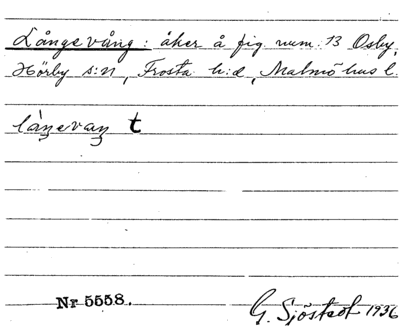 Långevång: åker å fig. num. 13 Osby,
Hörby s:n, Frosta h:d, Malmöhus l.
t
Nr 5558.
G. Sjöstedt 1936